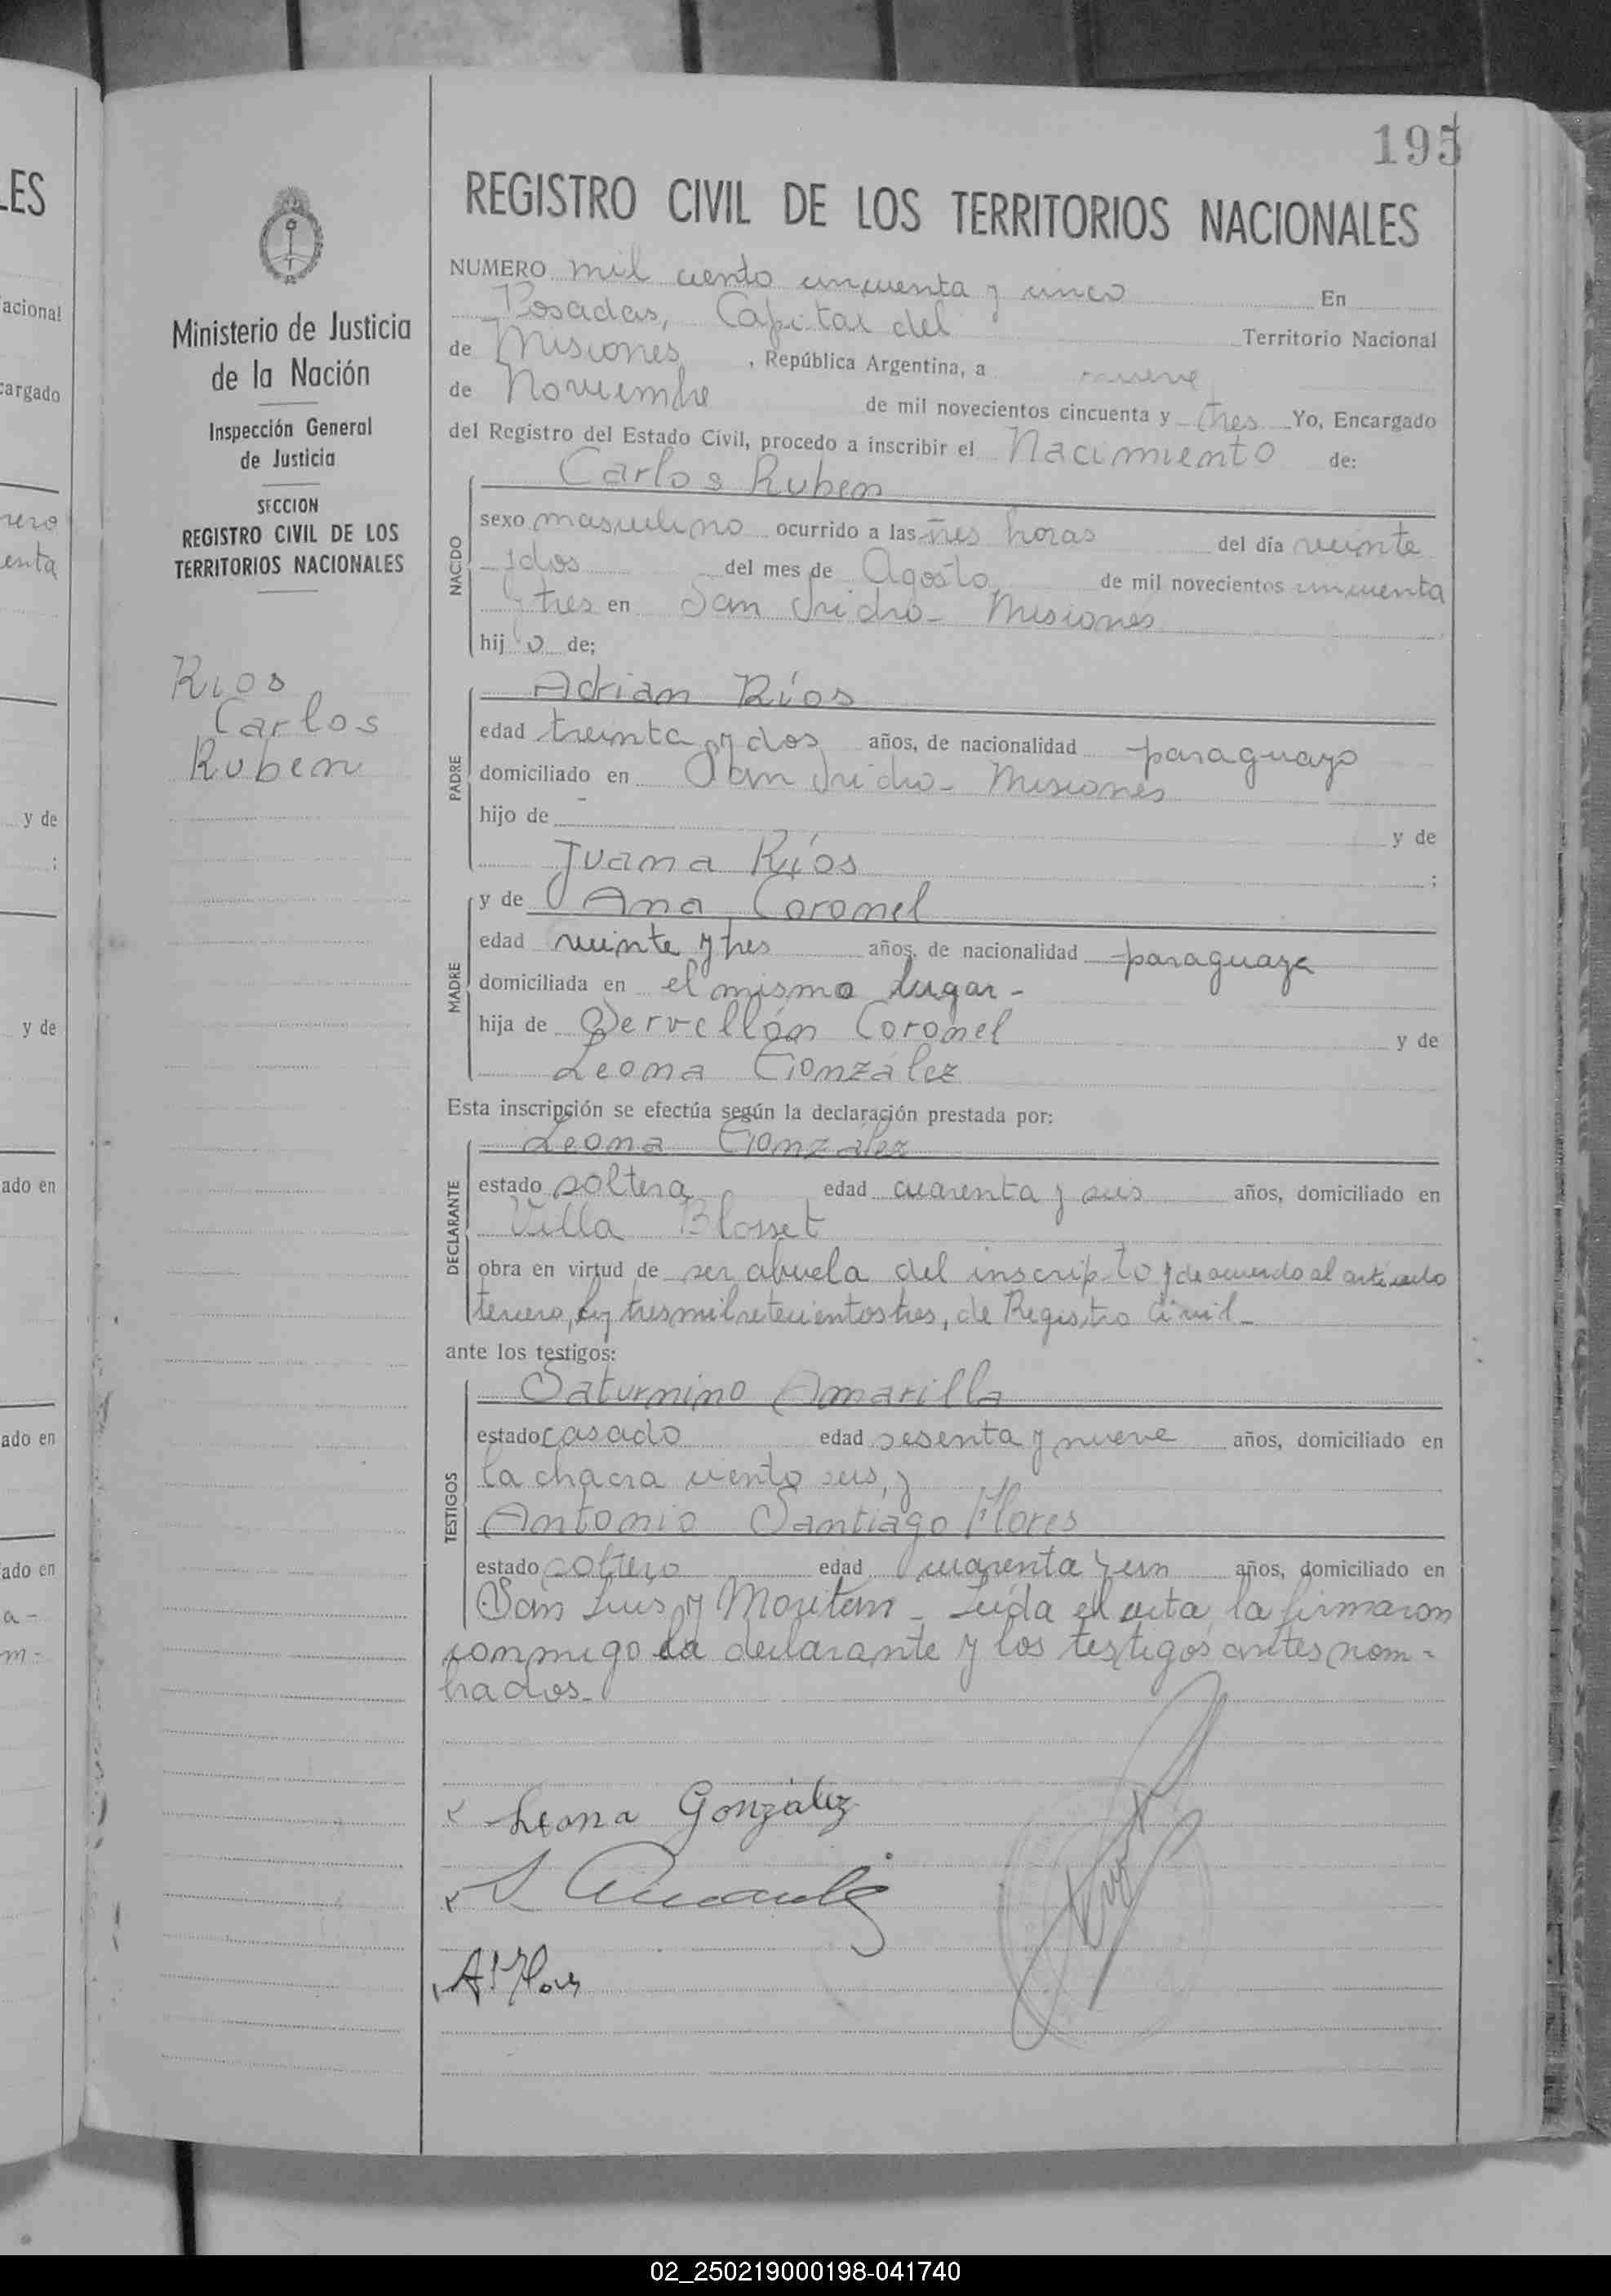 195
REGISTRO CIVIL DE LOS TERRITORIOS NACIONALES
NUMERO mil ciento cincuenta y cinco En
Posadas, Capital del Territorio Nacional
de Misiones, República Argentina, a nueve
de Noviembre de mil novecientos cincuenta y tres Yo, Encargado
del Registro del Estado Civil, procedo a inscribir el Nacimiento de:
Carlos Ruben
NACIDO
sexo masculino ocurrido a las tres horas del día veinte
y dos del mes de Agosto, de mil novecientos cincuenta
y tres en San Isidro - Misiones
hijo de;
Adrian Ríos
PADRE
edad treinta y dos años, de nacionalidad paraguayo
domiciliado en San Isidro - Misiones
hijo de - y de
Juana Ríos ;
y de Ana Coronel
MADRE
edad veinte y tres años, de nacionalidad paraguaya
domiciliada en el mismo lugar -
hija de Servellón Coronel y de
Leona González
Esta inscripción se efectúa según la declaración prestada por:
Leona González
DECLARANTE
estado soltera edad cuarenta y seis años, domiciliado en
Villa Blosset
obra en virtud de ser abuela del inscripto y de acuerdo al artículo
tercero, ley tres mil setecientos tres, de Registro Civil -
ante los testigos:
Saturnino Amarilla
TESTIGOS
estado casado edad sesenta y nueve años, domiciliado en
la chacra ciento seis, y
Antonio Santiago Flores
estado soltero edad cuarenta y un años, domiciliado en
San Luis y Moritán - Leída el acta, la firmaron
conmigo la declarante y los testigos antes nom-
brados -
Leona González
A S Flores
Ministerio de Justicia
de la Nación
Inspección General
de Justicia
SECCION
REGISTRO CIVIL DE LOS
TERRITORIOS NACIONALES
Rios
Carlos
Ruben
LES
acional
cargado
enta
y de
;
y de
ado en
ado en
ado en
a -
m -
02_250219000198-041740